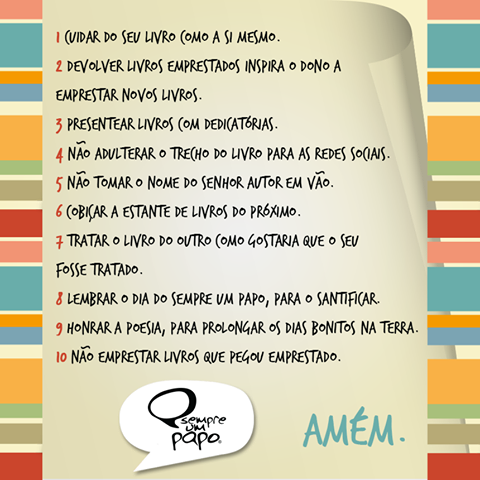 1 CUIDAR DO SEU LIVRO COMO A SI MESMO.
2 DEVOLVER LIVROS EMPRESTADOS INSPIRA O DONO A
EMPRESTAR NOVOS LIVROS.
3 PRESENTEAR LIVROS COM DEDICATÓRIAS.
4 NÃO ADULTERAR O TRECHO DO LIVRO PARA AS REDES SOCIAIS.
5 NÃO TOMAR O NOME DO SENHOR AUTOR EM VÃO.
6 COBIÇAR A ESTANTE DE LIVROS DO PRÓXIMO.
7 TRATAR O LIVRO DO OUTRO COMO GOSTARIA QUE O SEU
FOSSE TRATADO.
8 LEMBRAR O DIA DO SEMPRE UM PAPO, PARA O SANTIFICAR.
9 HONRAR A POESIA, PARA PROLONGAR OS DIAS BONITOS NA TERRA.
10 NÃO EMPRESTAR LIVROS QUE PEGOU EMPRESTADO.
sempre
um
papo.
AMÉM.